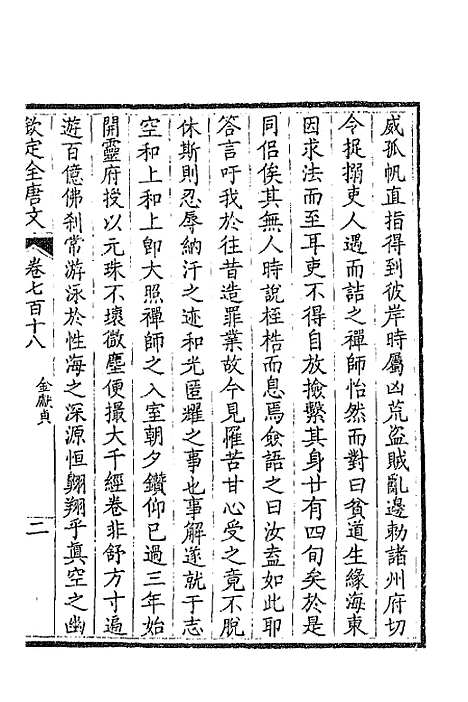 威孤帆直指得到彼岸時屬凶荒盜賊亂邊勅諸州府切
令捉搦吏人遇而詰之禪師怡然而對曰貧道生緣海東
因求法而至耳吏不得自放撿繫其身廿有四旬矣於是
同侶俟其無人時說桎梏而息焉僉語之曰汝盍如此耶
答言吁我於往昔造罪業故今見罹苦甘心受之竟不脫
休斯則忍辱納汙之迹和光匿耀之事也事解遂就于志
空和上和上卽大照禪師之入室朝夕鑽仰已過三年始
開靈府授以元珠不壞微塵便撮大千經卷非舒方寸遍
遊百億佛刹常游泳於性海之深源恒翺翔乎眞空之幽
欽定全唐文 卷七百十八 金獻貞 二